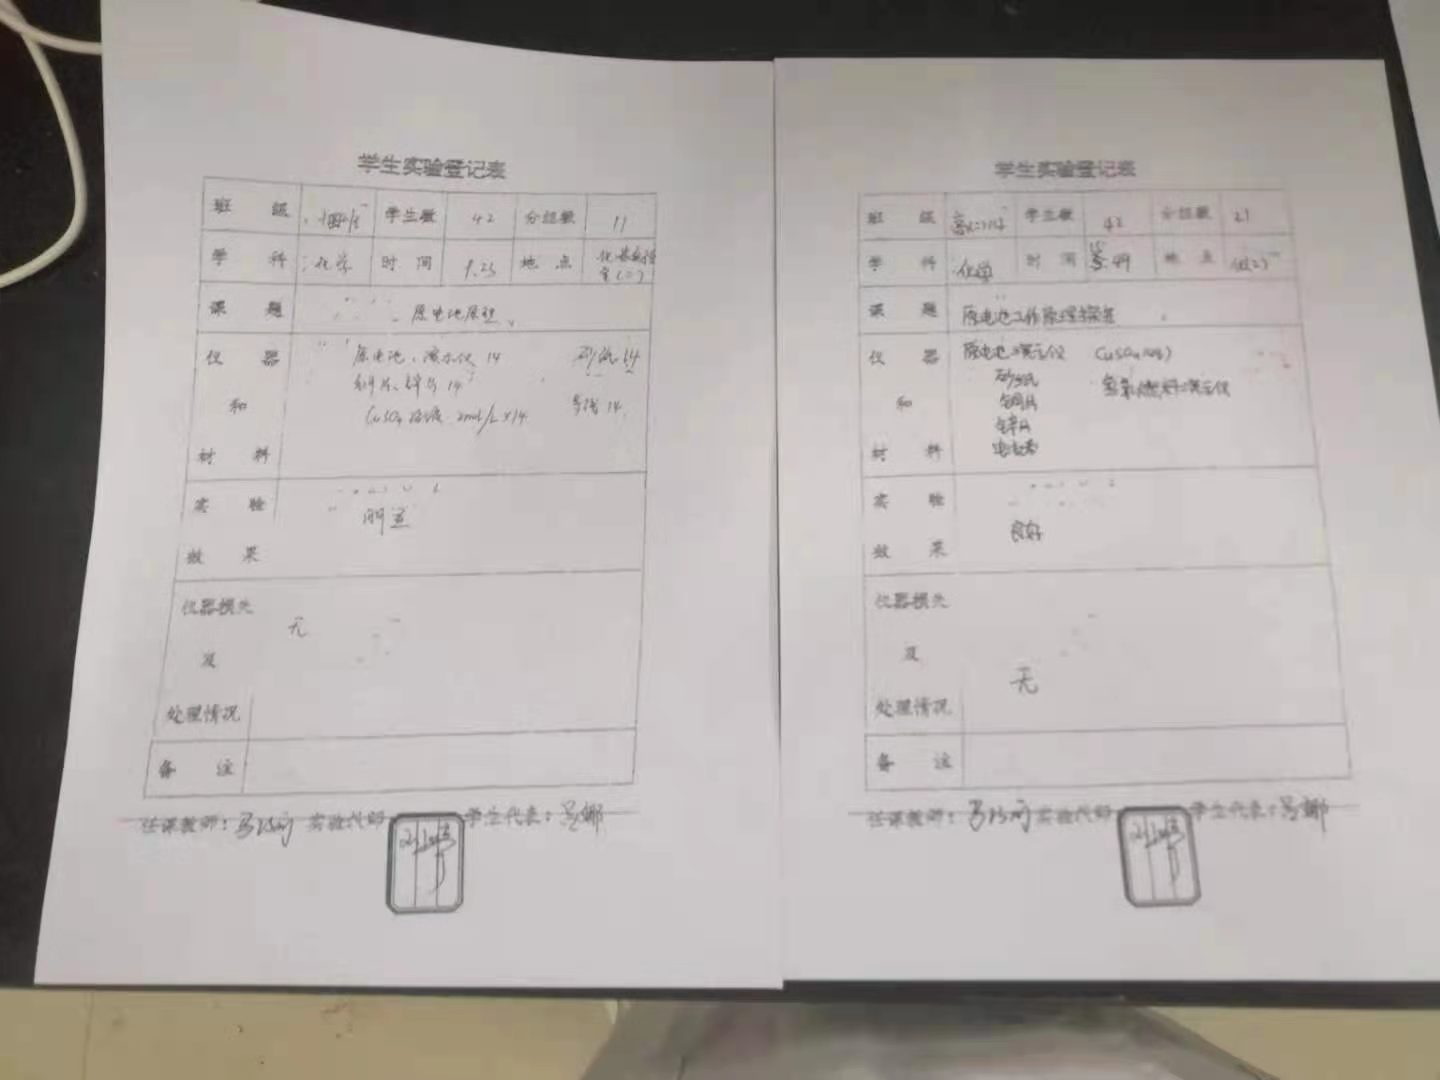 学生实验登记表
班 级 学生数 42 分组数 11
学 科 化学 时 间 9.23 地 点
课 题 原电池原理
仪 器 原电池演示仪 14 砂纸 14
铜片、锌片 14
和 CuSO₄溶液 2mol/L×14 导线 14
材 料
实 验
明显
效 果
仪器损失
无
及
处理情况
备 注
任课教师: 实验代的 学生代表:
学生实验登记表
班 级 学生数 42 分组数 21
学 科 化学 时 间 地 点
课 题 原电池工作原理探究
仪 器 原电池演示仪
砂纸 氢氧燃料演示仪
和 铜片
锌片
材 料
实 验
良好
效 果
仪器损失
及
无
处理情况
备 注
任课教师: 实验代的 学生代表: